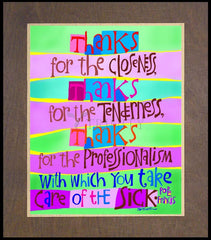 Thanks
for the closeness,
Thanks
for the Tenderness,
Thanks
for the Professionalism
with which you take
care of the sick.